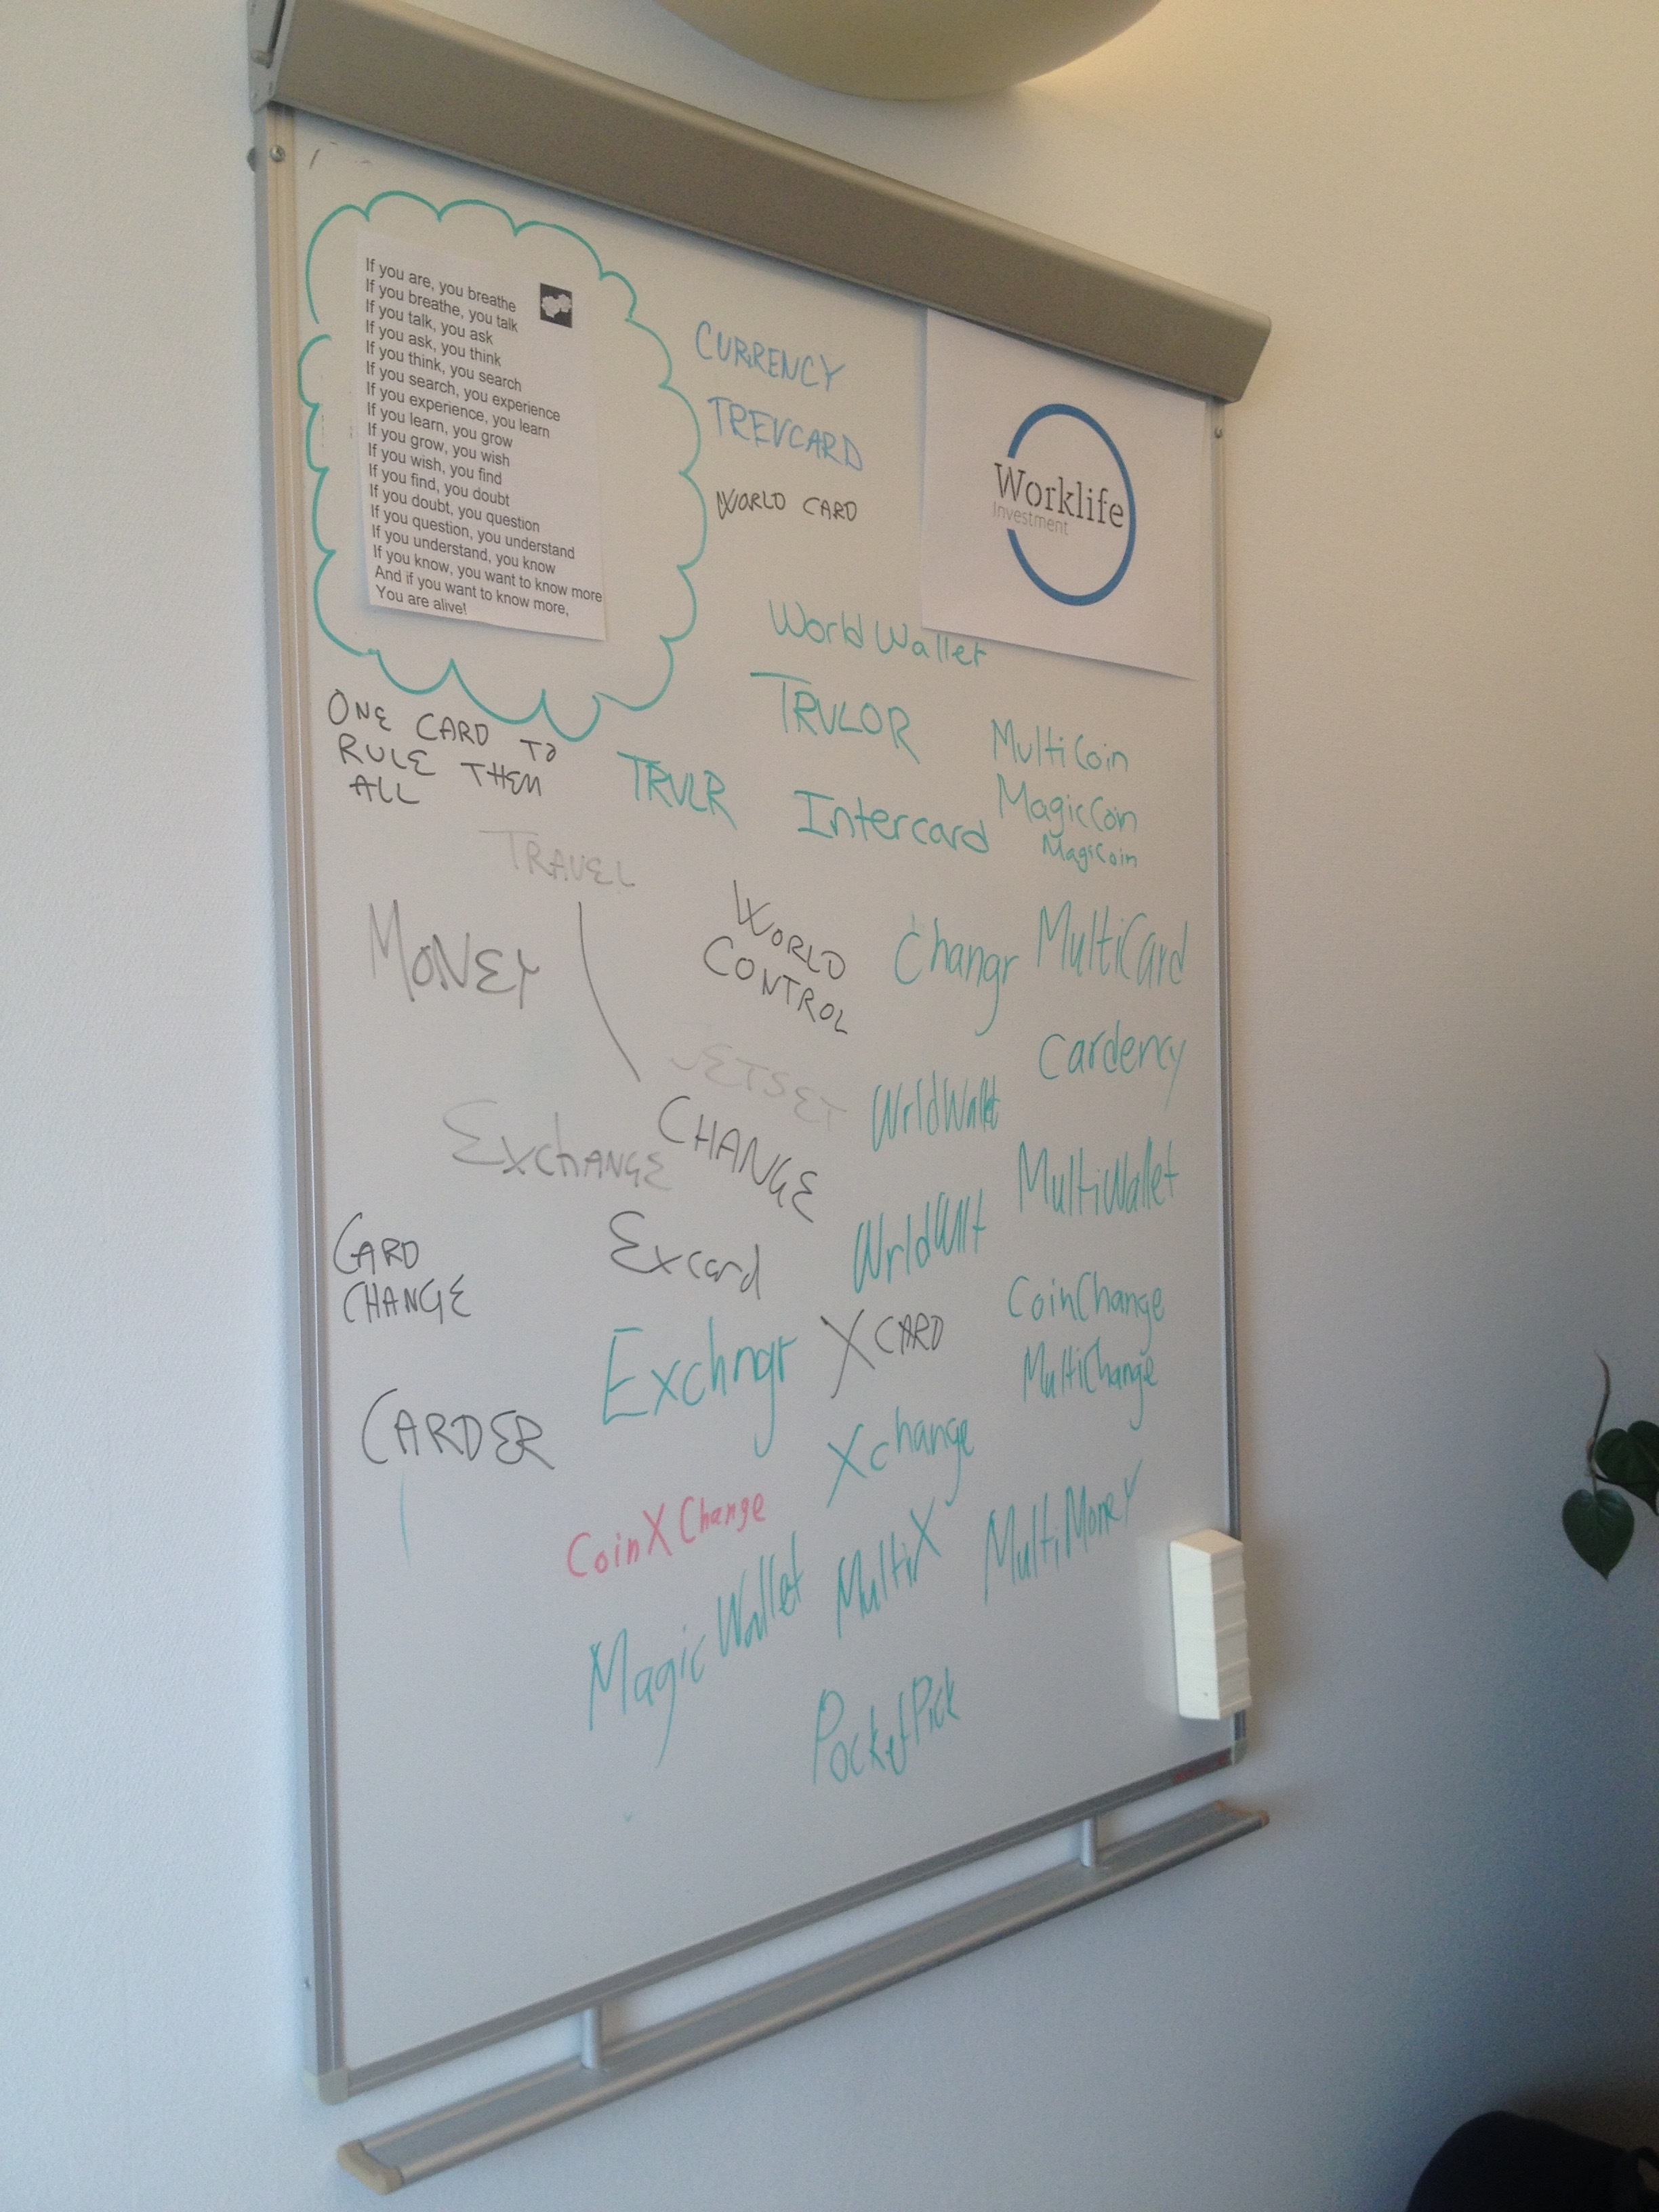 If you are, you breathe
If you breathe, you talk
If you talk, you ask
If you ask, you think
If you think, you search
If you search, you experience
If you experience, you learn
If you learn, you grow
If you grow, you wish
If you wish, you find
If you find, you doubt
If you doubt, you question
If you question, you understand
If you understand, you know
If you know, you want to know more
And if you want to know more,
You are alive!
CURRENCY
TREVCARD
WORLD CARD
Worklife
Investment
World Wallet
TRVLOR
ONE CARD TO
RULE THEM
ALL
TRVLR
Intercard
MultiCoin
MagicCoin
MagsCoin
TRAVEL
MONEY
WORLD
CONTROL
Changr
MultiCard
Cardency
JETSET
WrldWallet
EXCHANGE
CHANGE
MultiWallet
CARD
CHANGE
Excard
WrldWllt
CoinChange
MultiChange
Exchngr
XCARD
CARDER
Xchange
CoinXChange
MagicWallet
MultiX
MultiMoney
PocketPick